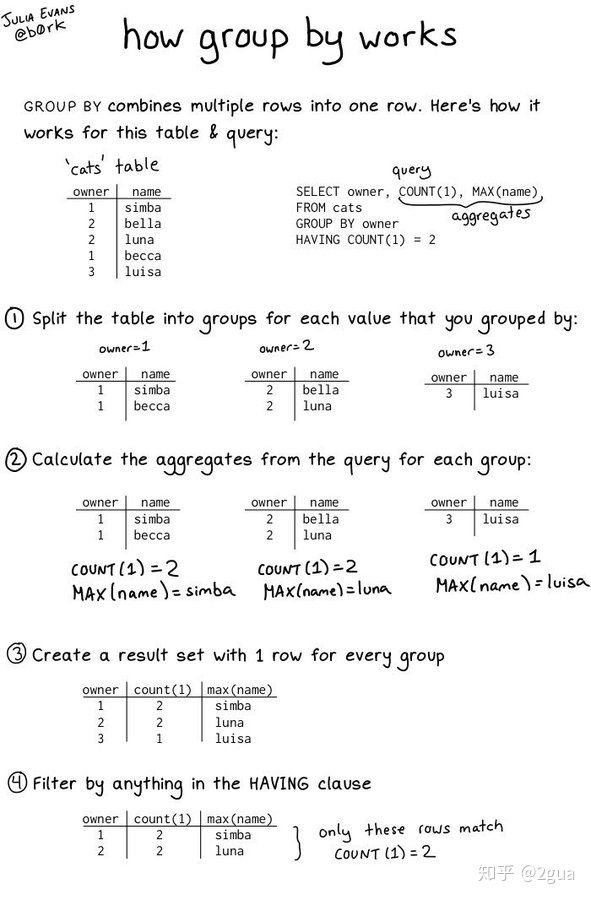 JULIA EVANS
@b0rk
how group by works
GROUP BY combines multiple rows into one row. Here's how it
works for this table & query:
'cats' table
owner name
1 simba
2 bella
2 luna
1 becca
3 luisa
query
SELECT owner, COUNT(1), MAX(name)
FROM cats
GROUP BY owner
HAVING COUNT(1) = 2
aggregates
① Split the table into groups for each value that you grouped by:
owner=1
owner name
1 simba
1 becca
owner=2
owner name
2 bella
2 luna
owner=3
owner name
3 luisa
② Calculate the aggregates from the query for each group:
owner name
1 simba
1 becca
COUNT(1)=2
MAX(name)=simba
owner name
2 bella
2 luna
COUNT(1)=2
MAX(name)=luna
owner name
3 luisa
COUNT(1)=1
MAX(name)=luisa
③ Create a result set with 1 row for every group
owner count(1) max(name)
1 2 simba
2 2 luna
3 1 luisa
④ Filter by anything in the HAVING clause
owner count(1) max(name)
1 2 simba
2 2 luna
only these rows match
COUNT(1)=2
知乎 @2gua